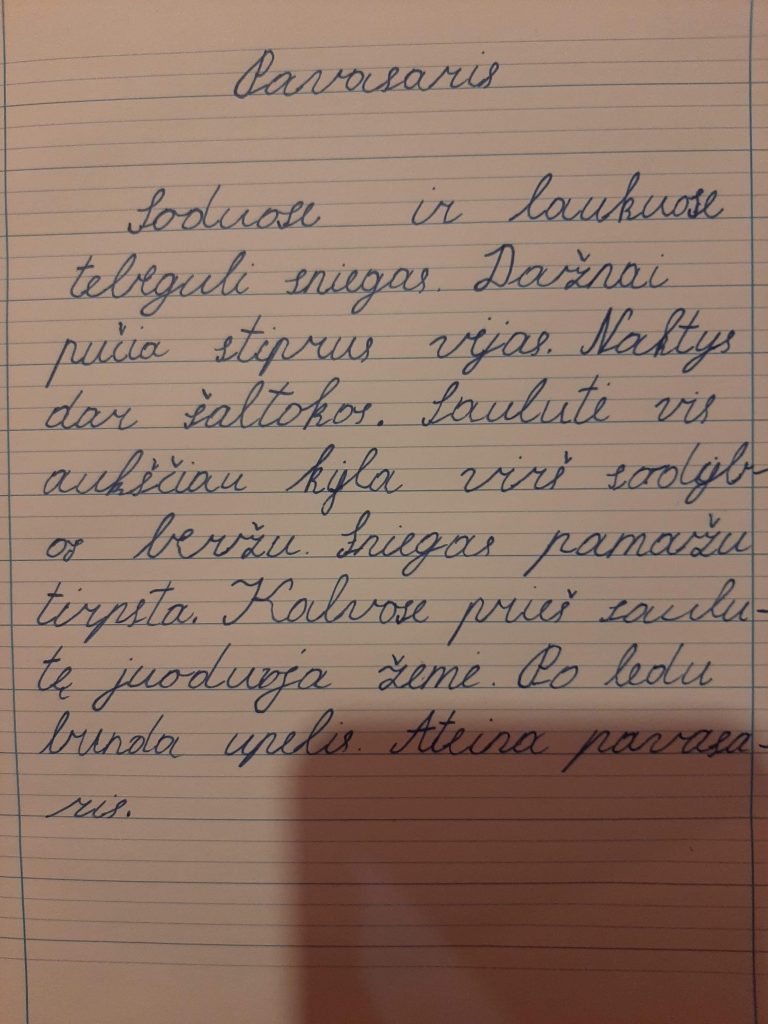 Pavasaris
Soduose ir laukuose
tebeguli sniegas. Dažnai
pučia stiprus vėjas. Naktys
dar šaltokos. Saulutė vis
aukščiau kyla virš sodyb-
os beržu. Sniegas pamažu
tirpsta. Kalvose prieš saulu-
tę juoduoja žemė. Po ledu
bunda upelis. Ateina pavasa-
ris.